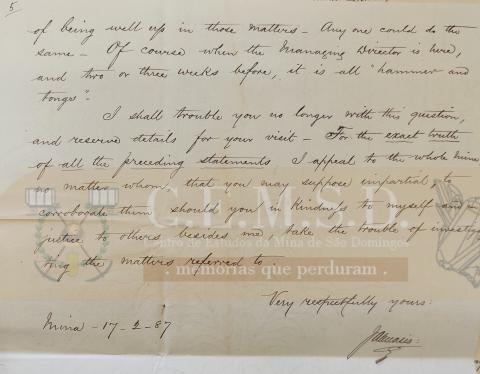 5/
of being well up in those matters - Any one could do the
same - Of course when the Managing Director is here,
and two or three weeks before, it is all "hammer and
tongs".
I shall trouble you no longer with this question,
and reserve details for your visit - For the exact truth
of all the preceding statements I appeal to the whole Mine
no matter whom, that you may suppose impartial, to
corroborate them should you in kindness to myself and
justice to others besides me, take the trouble of investiga
ting the matters referred to.
C.E.M.S.D.
Centro de Estudos da Mina de São Domingos
. memórias que perduram .
Very respectfully yours:
Mina - 17 - 2 - 87